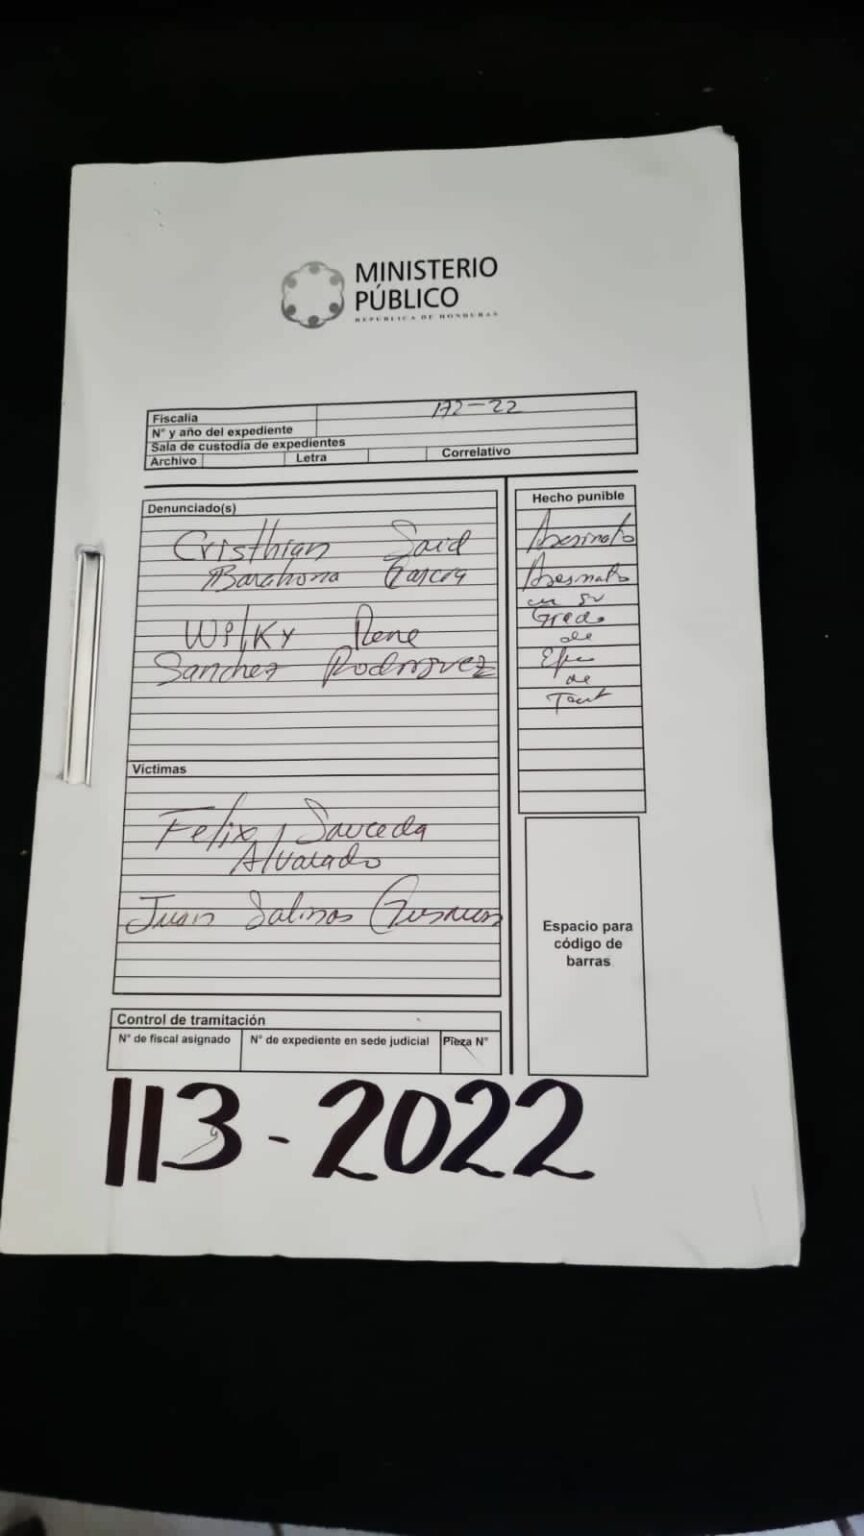 MINISTERIO
PÚBLICO
REPÚBLICA DE HONDURAS
Fiscalía
172-22
N° y año del expediente
Sala de custodia de expedientes
Archivo Letra Correlativo
Denunciado(s)
Cristhian Said
Barahona Garcia
Wilky Rene
Sanchez Rodriguez
Hecho punible
Asesinato
Asesinato
en su
Grado
de
de
Tent
Víctimas
Felix Sauceda
Alvarado
Juan Salinas
Espacio para
código de
barras
Control de tramitación
N° de fiscal asignado N° de expediente en sede judicial Pieza N°
113-2022